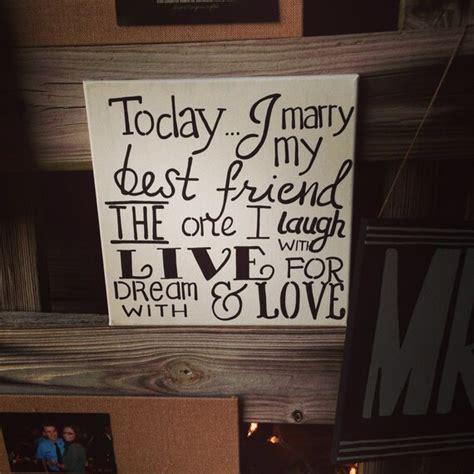 Today...I marry
my
best friend
THE one I laugh
WITH
LIVE FOR
DREAM
WITH & LOVE
MR